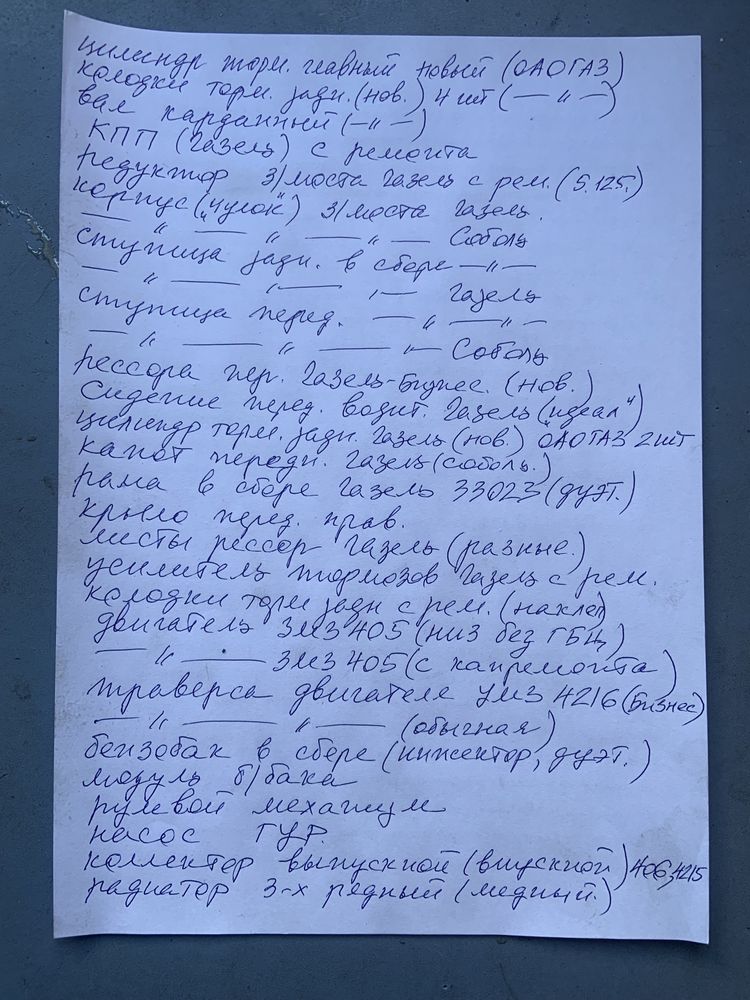 цилиндр торм. главный новый (ОАОГАЗ)
колодки торм. задн. (нов.) 4 шт (— " —)
вал карданный (— " —)
КПП (Газель) с ремонта
редуктор з/моста Газель с рем. (5.125.)
корпус („чулок“) з/моста Газель.
— " — " — " — Соболь
ступица задн. в сборе — " —
— " — " — " — Газель
ступица перед. — " — " —
— " — " — " — Соболь
рессора пер. Газель-Бизнес. (нов.)
Сидение перед. водит. Газель („идеал“)
цилиндр торм. задн. Газель (нов.) "ОАОГАЗ 2 шт
капот передн. Газель (соболь.)
рама в сборе Газель 33023 (дуэт.)
крыло перед. прав.
листы рессор Газель (разные.)
усилитель тормозов Газель с рем.
колодки торм задн с рем. (наклеп)
двигатель ЗМЗ 405 (низ без ГБЦ)
— " — ЗМЗ 405 (с капремонта)
траверса двигателя УМЗ 4216 (Бизнес)
— " — " — (обычная)
бензобак в сборе (инжектор, дуэт.)
модуль б/бака
рулевой механизм
насос ГУР.
коллектор выпускной (впускной) 406, 4215
радиатор 3-х рядный (медный.)